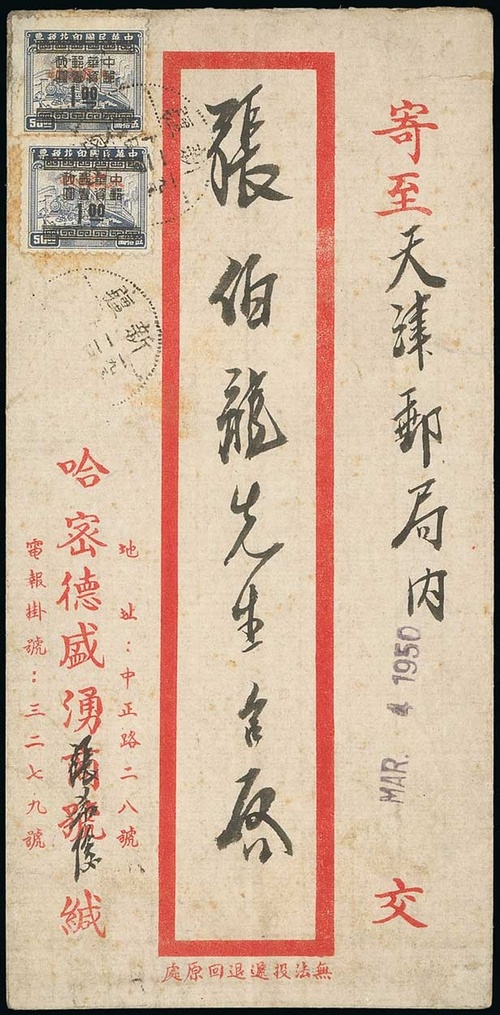 寄至天津郵局内
交
MAR. 4 1950
張伯龍先生台啓
無法投遞退回原處
地址：中正路二八號
哈密德盛湧商號緘
電報掛號：三二七九號
中華民國印花稅票
中華郵政
1.00
50
中華民國印花稅票
中華郵政
1.00
50
新疆